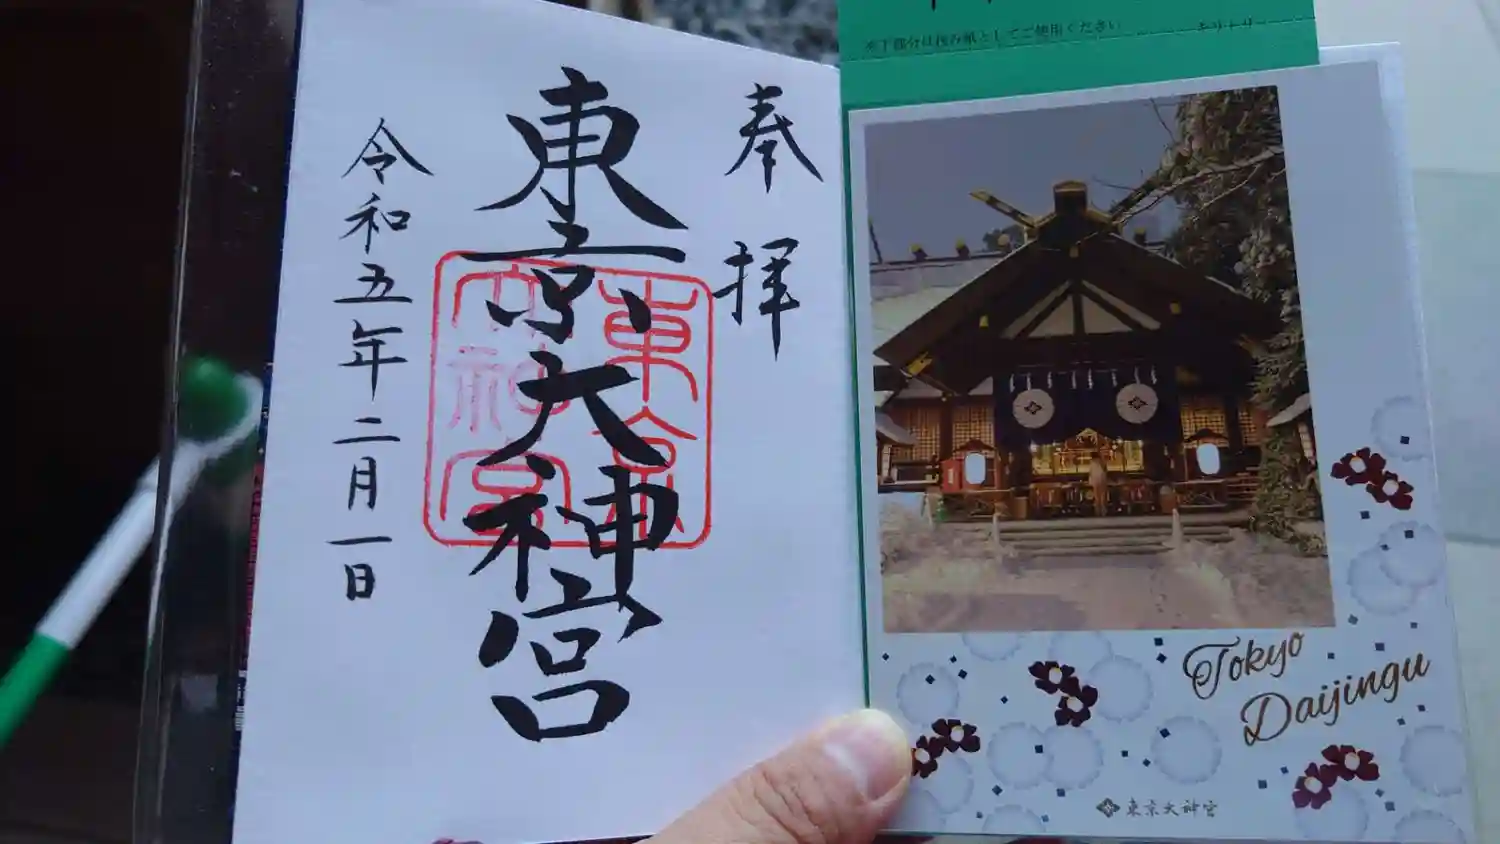 奉拝
東京大神宮
東京
大神宮
令和五年二月一日
※下部分は包み紙としてご使用ください
キリトリ
Tokyo
Daijingu
東京大神宮